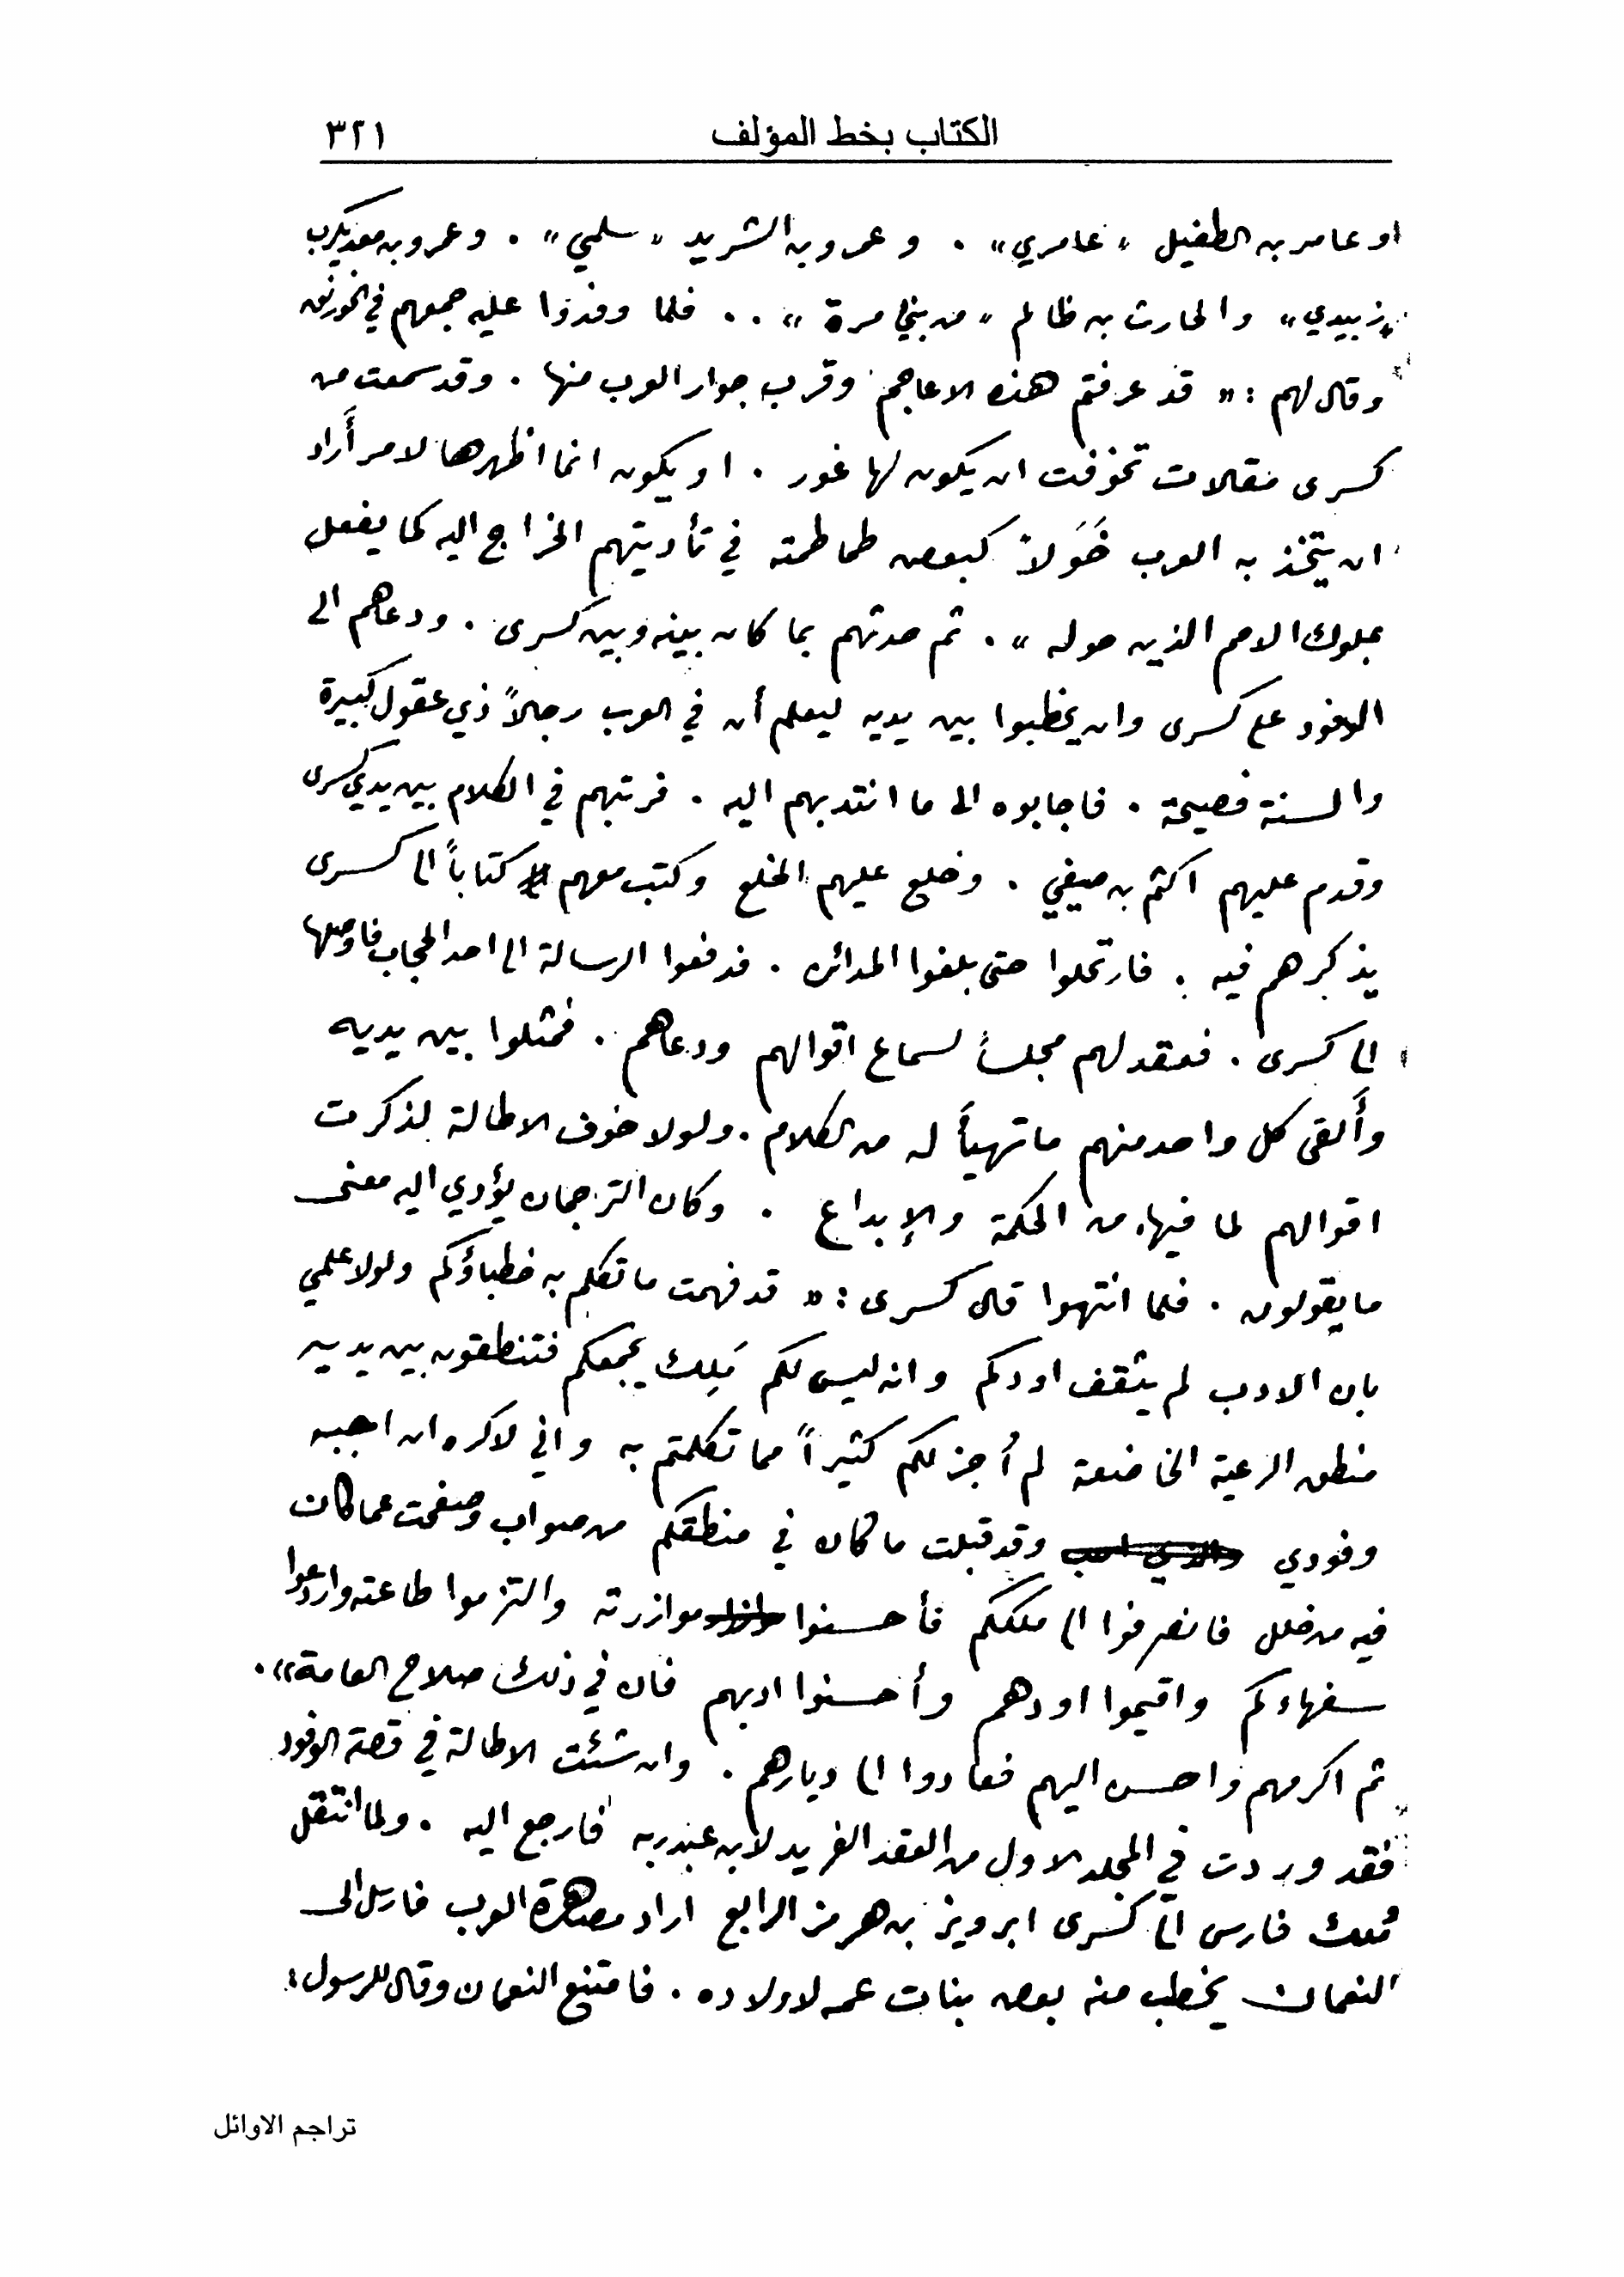 الكتاب بخط المؤلف ٣٢١
او عامر بن الطفيل «عامري» . وعمرو بن الشريد «سلمي» . وعمرو بن معديكرب
«زبيدي» والحارث بن ظالم «من بني مرة» . . فلما وفدوا عليه جمعهم في الخورنق
وقال لهم : « قد عرفتم هذه الاعاجم وقرب جوار العرب منها . وقد سمعت من
كسرى مقالات تخوفت ان يكون لها غور . او يكون انما اظهرها لامر أَراد
ان يتخذ به العرب خَوَلاً كبعض طماطمته في تأديتهم الخراج اليه كما يفعل
بملوك الامم الذين حوله » . ثم حدثهم بما كان بينه وبين كسرى . ودعاهم الى
الوفود على كسرى وان يخطبوا بين يديه ليعلم أن في العرب رجالاً ذي عقول كبيرة
والسنة فصيحة . فاجابوه الى ما انتدبهم اليه . فرتبهم في الكلام بين يدي كسرى
وقدم عليهم اكثم بن صيفي . وخلع عليهم الخلع وكتب معهم كتاباً الى كسرى
يذكرهم فيه . فارتحلوا حتى بلغوا المدائن . فدفعوا الرسالة الى احد الحجاب فاوصلها
الى كسرى . فعقد لهم مجلساً لسماع اقوالهم ودعاهم . فمثلوا بين يديه
وأَلقى كل واحد منهم ما تهيأَ له من الكلام . ولولا خوف الاطالة لذكرت
اقوالهم لما فيها من الحكمة والإبداع . وكان الترجمان يؤدي اليه معنى
ما يقولون . فلما انتهوا قال كسرى : « قد فهمت ما تكلم به خطباؤكم ولولا علمي
بان الادب لم يثقف اودكم وانه ليس لكم مَلِك يجمعكم فتنطقون بين يديه
منطق الرعية الخاضعة لم أُجز لكم كثيراً مما تكلمتم به واني لاكره ان اجبه
وفودي وقد قبلت ما كان في منطقكم من صواب وصفحت عما كان
فيه من خلل فانصرفوا الى ملككم فأحسنوا موازرته والتزموا طاعته واردعوا
سفهاءكم واقيموا اودهم وأحسنوا ادبهم فان في ذلك صلاح العامة» .
ثم اكرمهم واحسن اليهم فعادوا الى ديارهم . وان شئت الاطالة في قصة الوفود
فقد وردت في المجلد الاول من العقد الفريد لابن عبد ربه فارجع اليه . ولما انتقل
مُلك فارس الى كسرى ابرويز بن هرمز الرابع اراد مصاهرة العرب فارسل الى
النعمان يخطب منه بعض بنات عمه لاولاده . فامتنع النعمان وقال للرسول :
تراجم الاوائل